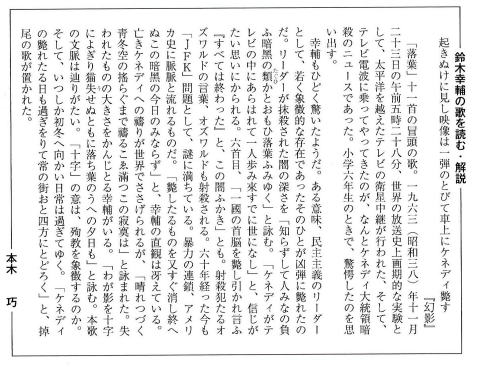 鈴木幸輔の歌を読む・解説
起きぬけに見し映像は一弾のとびて車上にケネディ斃す
『幻影』
「落葉」十一首の冒頭の歌。一九六三(昭和三八)年十一月
二十三日の午前五時二十八分、世界の放送史上画期的な実験と
して、太平洋を越えたテレビの衛星中継が行われた、そして、
テレビ電波に乗ってやってきたのが、なんとケネディ大統領暗
殺のニュースであった。小学六年生のときで、驚愕したのを思
い出す。
幸輔もひどく驚いたようだ。ある意味、民主主義のリーダー
として、若く象徴的な存在であったそのひとが凶弾に斃れたの
だ。リーダーが抹殺された闇の深さを「知らずして人みなの負
ふ暗黒の類かとおもひ落葉ふみゆく」と詠む。「ケネディがテ
レビの中にあらはれて一人歩み来すでに世になし」と、信じが
たい思いにからられる。六首目、「一國の首脳を斃し引かれ言ふ
『すべては終わった』と、この闇ふかき」とも。射殺犯たるオ
ズワルドの言葉、オズワルドも射殺される。六十年経った今も
「JFK」問題として、謎に満ちている。暴力の連鎖、アメリ
カ史に脈脈と流れるものだ。「斃したるものを又すぐ消し終へ
ぬこの暗黒の今日のみならず」と、幸輔の直観は冴えている。
亡きケネディへの祷りが世界でささげられるが、「晴れつづく
青冬空の揺らぐまで禱るこゑ満つこの寂寞は」と詠まれた。失
われたものの大きさをかんじとる幸輔がいる。「わが影を十字
によぎり猫失せぬともに落ち葉のうへの夕日も」と詠む。本歌
の文脈は辿りがたい。「十字」の意は、殉教を象徴するのか。
そして、いつしか初冬へ向かい日常は過ぎてゆく。「ケネディ
の斃れたる日も過ぎをりて常の街おと四方にとどろく」と、掉
尾の歌が置かれた。
本木 巧